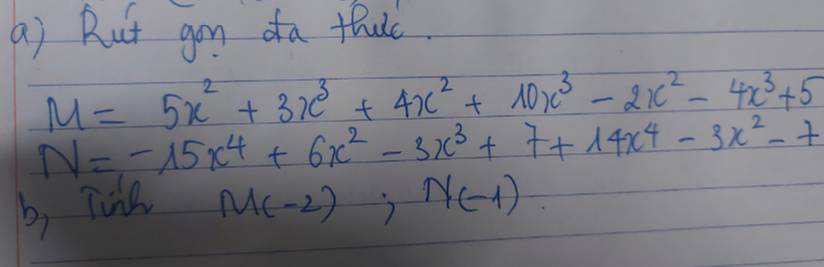 a) Rút gọn đa thức.
M = 5x² + 3x³ + 4x² + 10x³ - 2x² - 4x³ + 5
N = -15x⁴ + 6x² - 3x³ + 7 + 14x⁴ - 3x² - 7
b, Tính M(-2) ; N(-1).